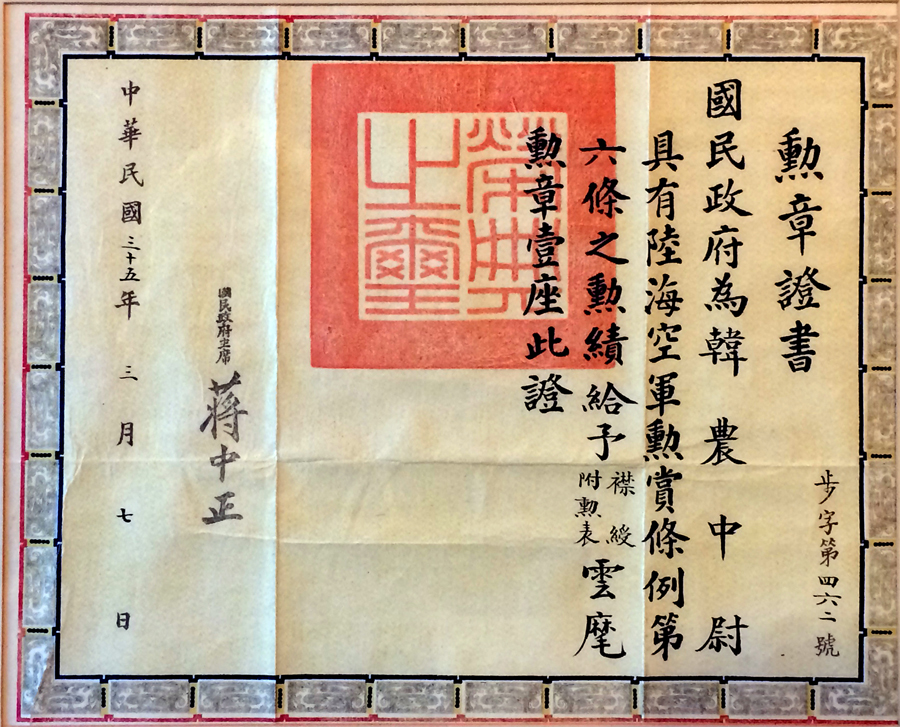 勲章證書
步字第四六二號
國民政府為韓農中尉
具有陸海空軍勲賞條例第
六條之勲績給予襟綬附勲表雲麾
勲章壹座此證
榮典之璽
國民政府主席蔣中正
中華民國三十五年三月七日